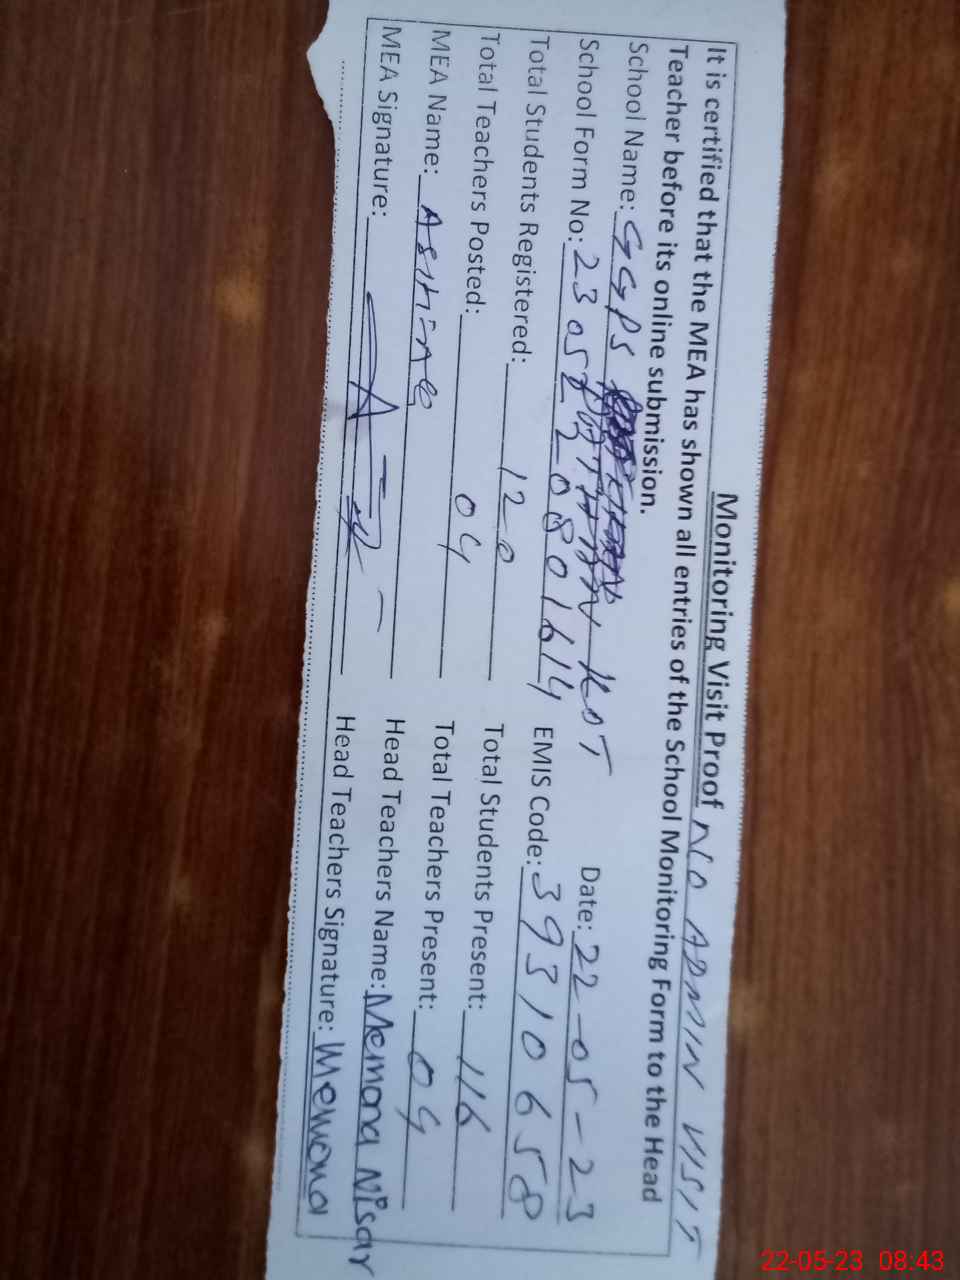 Monitoring Visit Proof NO ADMIN VISIT
It is certified that the MEA has shown all entries of the School Monitoring Form to the Head
Teacher before its online submission.
School Name: GGPS KOT Date: 22-05-23
School Form No: 2305220801614 EMIS Code: 39310658
Total Students Registered: 120 Total Students Present: 116
Total Teachers Posted: 04 Total Teachers Present: 04
MEA Name: Head Teachers Name: Memona Nisar
MEA Signature: Head Teachers Signature: Memona
22-05-23 08:43